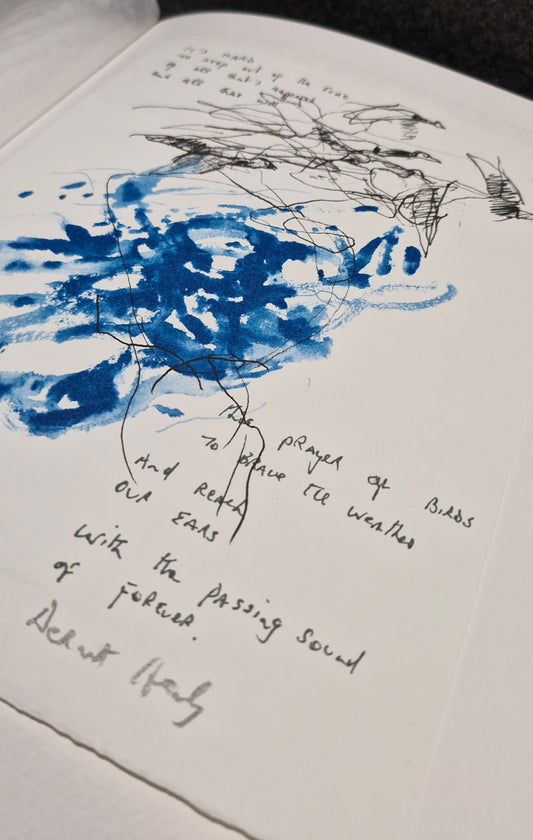 It's hard
to step out of the road
of all that's happened
and all that will
The prayer of BIRDS
To BRAVE the weather
And reach
OUR EARS
with the passing sound
of FOREVER.
Dermot Healy